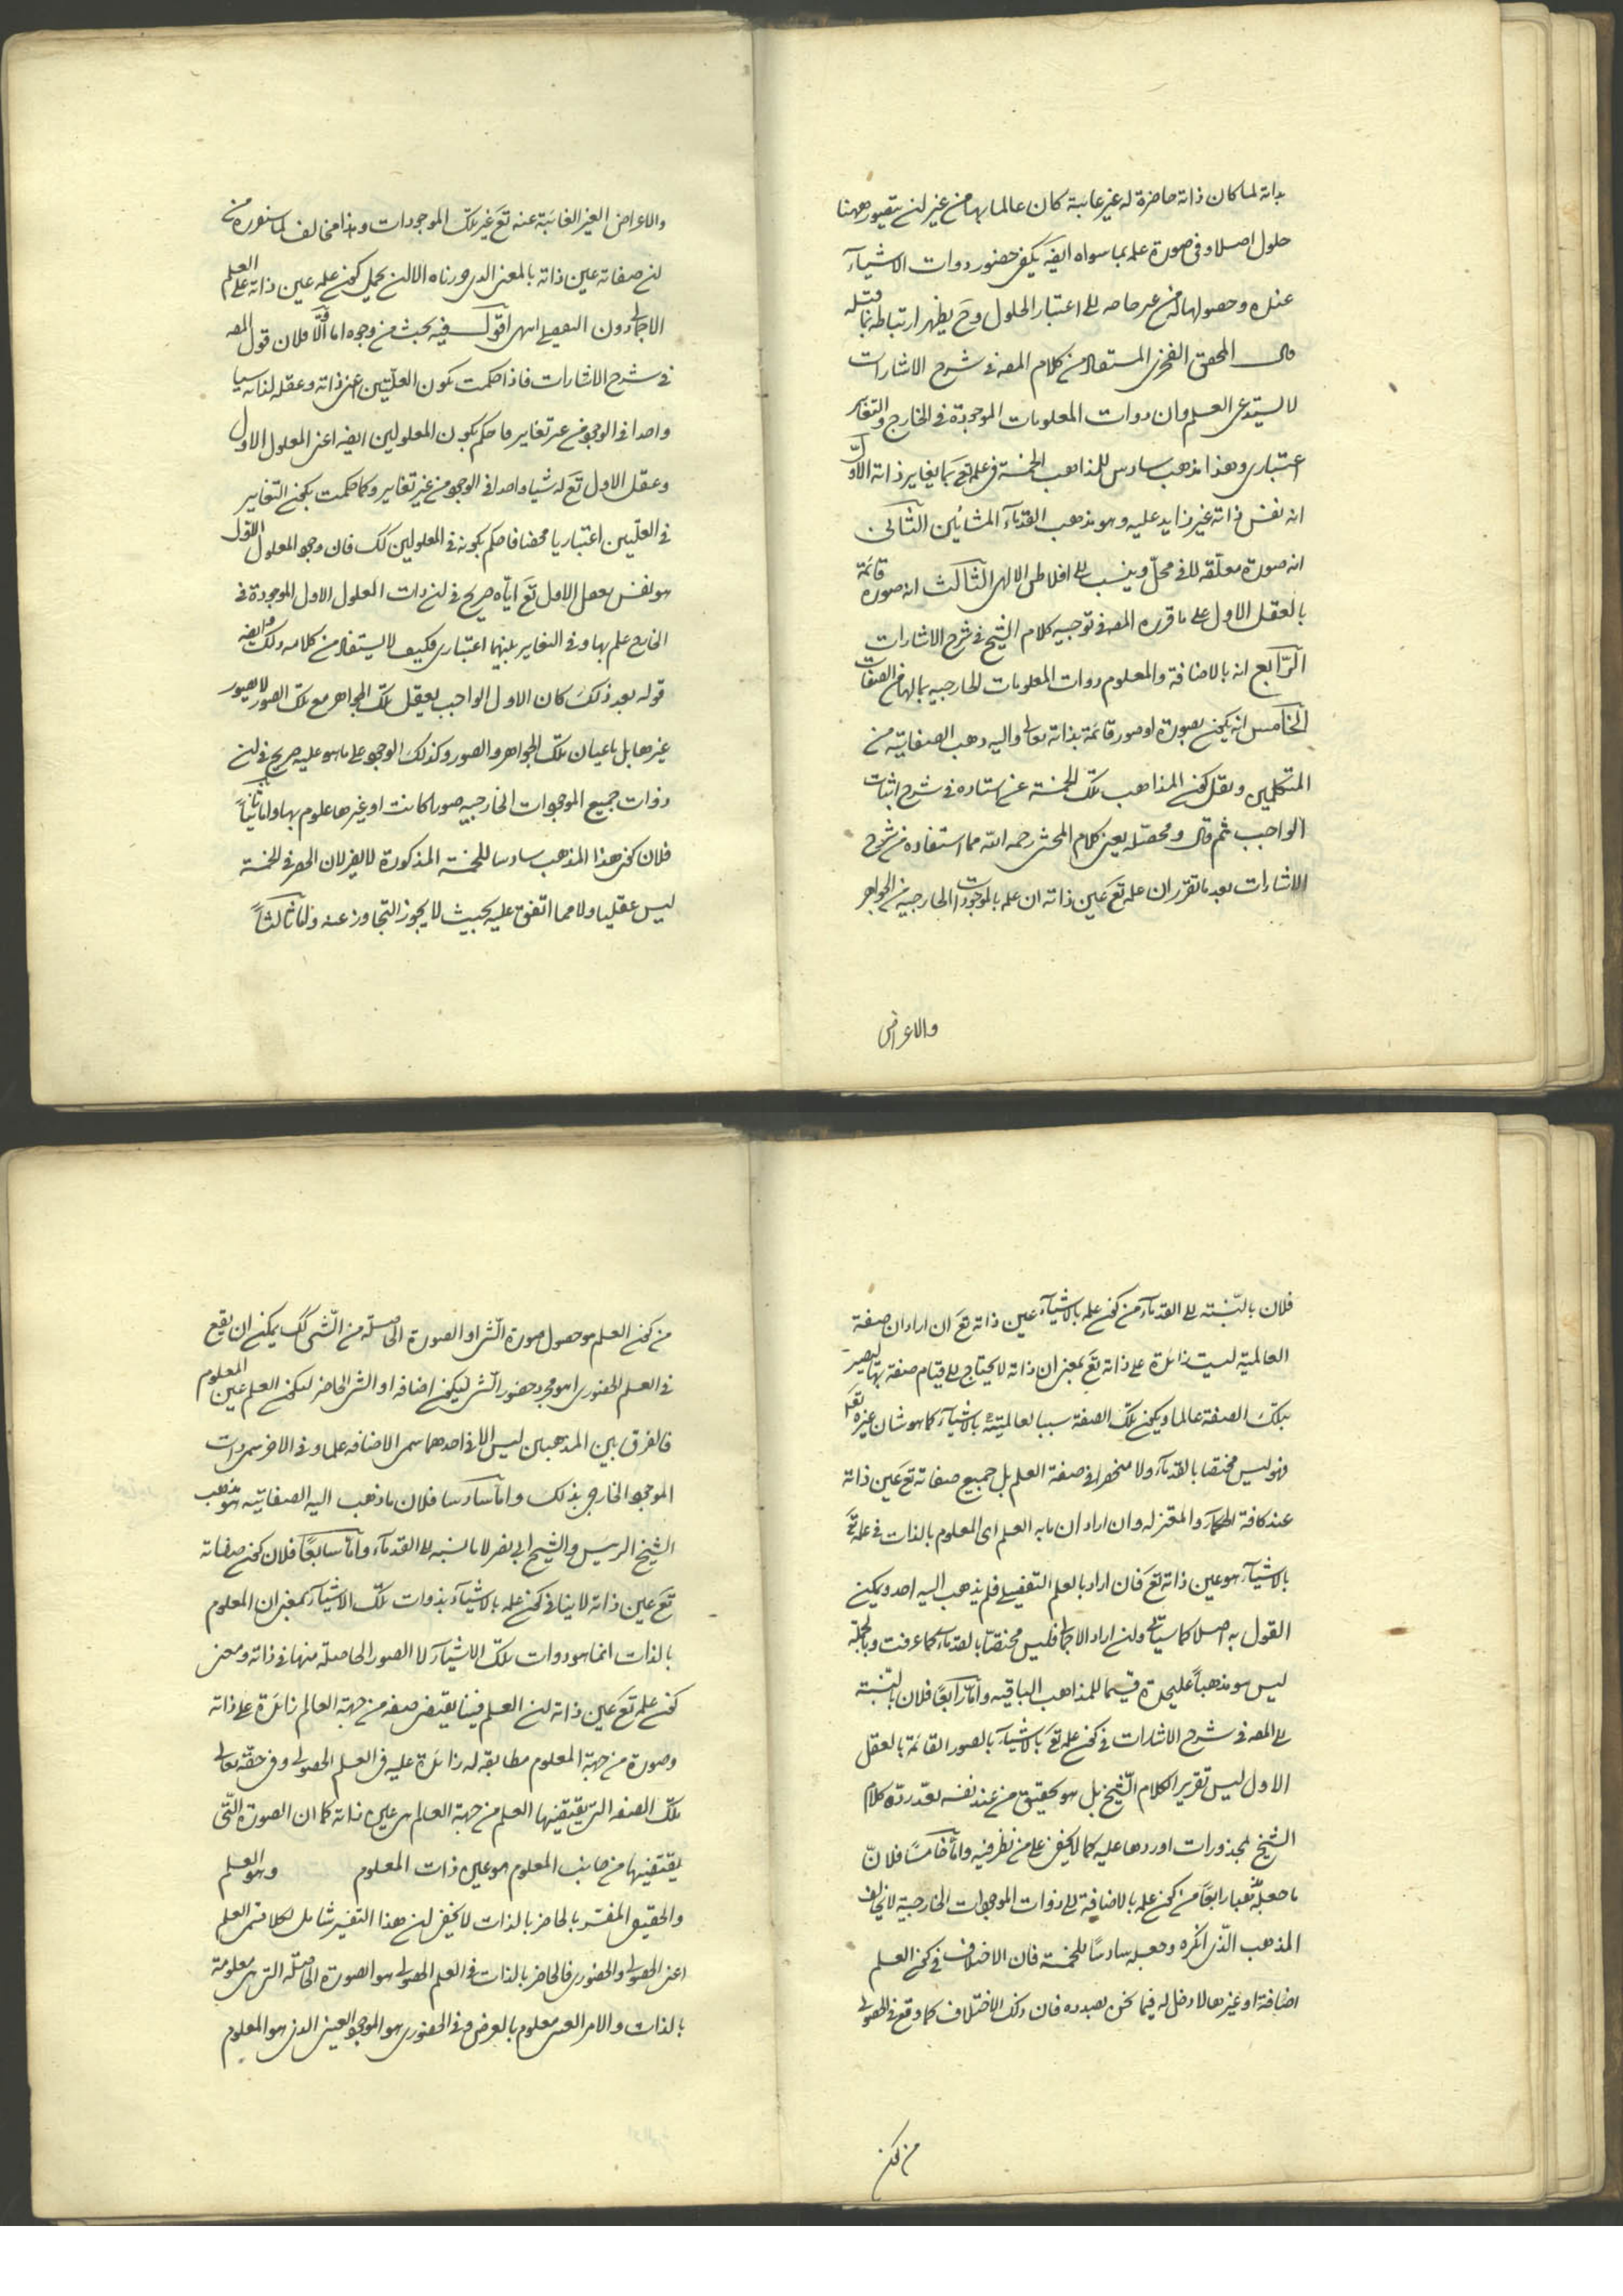 بذاته لما كان ذاته حاضرة له غير غايبة كان عالما بها من غير ان يتصور ههنا
حلول اصلا و فى صورة علمه بما سواه ايضه يكفى حضور ذوات الاشيآء
عنده و حصولها له من غير حاجة الى اعتبار الحلول و ح يظهر ارتباطه بما قبله
قال المحقق الفخرى المستفاد من كلام المصه فى شرح الاشارات
لا يستدعى العلم و ان ذوات المعلومات الموجودة فى الخارج و التغاير
اعتبارى و هذا مذهب سادس للمذاهب الخمسة فى علمه تع بما يغاير ذاته الاوّل
انه نفس ذاته غير زايد عليه و هو مذهب القدمآء المشائين الثانى
انه صورة معلّقه لا فى محلّ و ينسب الى افلاطن الالهى الثالث انه صورة قائمة
بالعقل الاول على ما قرره المصه فى توجيه كلام الشيخ فى شرح الاشارات
الرّابع انه بالاضافة و المعلوم ذوات المعلومات الخارجيه بمالها من الصفات
الخامس انه يكون بصورة او صور قائمة بذاته تعالى و اليه ذهب الصفاتيّة من
المتكلمين و نقل كون المذاهب تلك الخمسة عن استاده فى شرح اثبات
الواجب ثم قال و محصّله يعنى كلام المحشى رحمه الله مما استفاده من شرح
الاشارات بعد ما تقرّر ان علمه تع عين ذاته ان علمه بالموجودات الخارجيه من الجواهر
والاعراض
والاعراض الغير الغائبة عنه تع غير تلك الموجودات و هذا مخالف لما سنقرره من
ان صفاته عين ذاته بالمعنى الذى قررناه الا ان يحمل كون علمه عين ذاته على العلم
الاجمالى دون التفصيلى انتهى اقول فيه بحث من وجوه اما اوّلا فلان قول المصه
فى شرح الاشارات فاذا حكمت بكون العلّتين اعنى ذاته و عقله لذاته شيئا
واحدا فى الوجود من غير تغاير فاحكم بكون المعلولين ايضه اعنى المعلول الاول
و عقل الاول تع له شيئا واحدا فى الوجود من غير تغاير و كما حكمت بكون التغاير
فى العلّتين اعتباريا محضا فاحكم بكونه فى المعلولين كك فان وجود المعلول الاول
هو نفس تعقل الاول تع ايّاه صريح فى ان ذات المعلول الاول الموجودة فى
الخارج علم بها و فى التغاير بينهما اعتبارى فكيف لا يستفاد من كلامه ذلك و ايضه
قوله بعد ذلك كان الاول الواجب يعقل تلك الجواهر مع تلك الصور لا بصور
غيرها بل باعيان تلك الجواهر و الصور و كذلك الوجود على ما هو عليه صريح فى ان
ذوات جميع الموجودات الخارجيه صورا كانت او غيرها علوم بها و اما ثانياً
فلان كون هذا المذهب سادسا للخمسة المذكورة لا يضر لان الحصر فى الخمسة
ليس عقليا و لا مما اتفق عليه بحيث لا يجوز التجاوز عنه و اما ثالثاً
فلان بالنّسبته الى القدمآء من كون علمه بالاشيآء عين ذاته تع ان اراد ان صفة
العالمية ليست زائدة على ذاته تع بمعنى ان ذاته لا يحتاج الى قيام صفة بها ليصير
بتلك الصفة عالما و يكون تلك الصفة سببا لعالميّته بالاشيآء كما هو شان غيره تع
فهو ليس مختصا بالقدمآء و لا منحصرا فى صفة العلم بل جميع صفاته تع عين ذاته
عند كافة الحكمآء و المعتزله و ان اراد ان ما به العلم اى المعلوم بالذات فى علمه تع
بالاشيآء هو عين ذاته تع فان اراد بالعلم التفصيلى فلم يذهب اليه احد و يمكن
القول به اصلا كما سيأتى و ان اراد الاجمالى فليس مختصّا بالقدمآء كما عرفت و بالجملة
ليس هو مذهباً عليحدة قسيما للمذاهب الباقيه و امّا رابعًا فلان بالنّسبته
الى المصه فى شرح الاشارات فى كون علمه تع بالاشيآء بالصور القائمة بالعقل
الاول ليس تقرير الكلام الشيخ بل هو تحقيق من عند نفسه بعد ردّه كلام
الشيخ لمحذورات اوردها عليه كما لا يخفى على من نظر فيه و امّا خامسًا فلانّ
ما جعله مذهبا رابعًا من كون علمه بالاضافة الى ذوات الموجودات الخارجية لا يخالف
المذهب الّذى انكره و جعله سادسًا للخمسة فان الاختلاف فى كون العلم
اضافة او غيرها لا دخل له فيما نحن بصدده فان ذلك الاختلاف كما وقع فى الحصولى
من كون
من كون العلم هو حصول صورة الشئ او الصورة الحاصلة من الشئ كك يمكن ان يقع
فى العلم الحضورى اهو مجرد حضور الشئ ليكون اضافه او الشئ الحاضر ليكون العلم عين المعلوم
فالفرق بين المذهبين ليس الا فى احدهما سمى الاضافه علما و فى الاخر سمى ذات
الموجود الخارجى بذلك و امّا سادسا فلان ما ذهب اليه الصفاتيّه هو مذهب
الشيخ الرئيس و الشيخ ابى نصر لا ما نسبه الى القدمآء و امّا سابعًا فلان كون صفاته
تع عين ذاته لا ينافى كون علمه بالاشيآء بذوات تلك الاشيآء بمعنى ان المعلوم
بالذات انما هو ذوات تلك الاشيآء لا الصور الحاصلة منها فى ذاته و معنى
كون علمه تع عين ذاته ان العلم فينا يقتضى صفه من جهة العالم زائدة على ذاته
و صورة من جهة المعلوم مطابقه له زائدة عليه فى العلم الحصولى و فى حقّه تعالى
تلك الصفه التى يقتضيها العلم من جهة العالم هى عين ذاته كما ان الصورة الّتى
يقتضيها من جانب المعلوم هو عين ذات المعلوم و هو العلم
و الحقيق المفسّر بالحاضر بالذات لا يخفى ان هذا التفسير شامل لكلا قسمى العلم
اعنى الحصولى و الحضورى فالحاضر بالذات فى العلم الحصولى هو الصورة الحاصلة التى هى معلومة
بالذات و الامر العينى معلوم بالعرض و فى الحضورى هو الموجود العينى الذى هو المعلوم